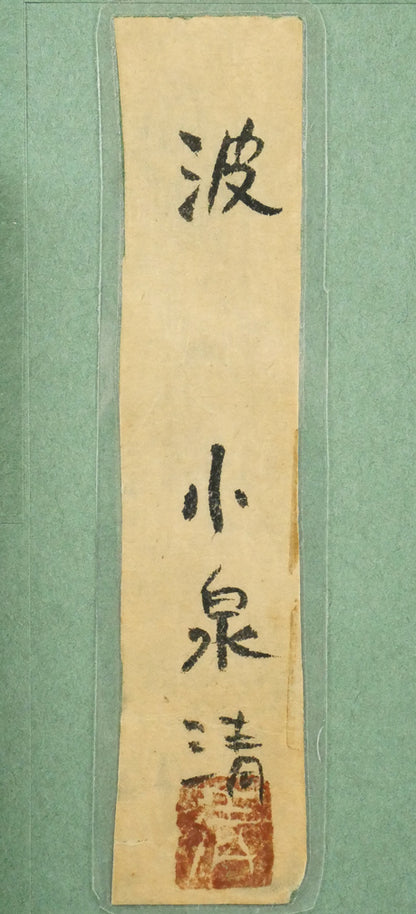 波
小泉清
清